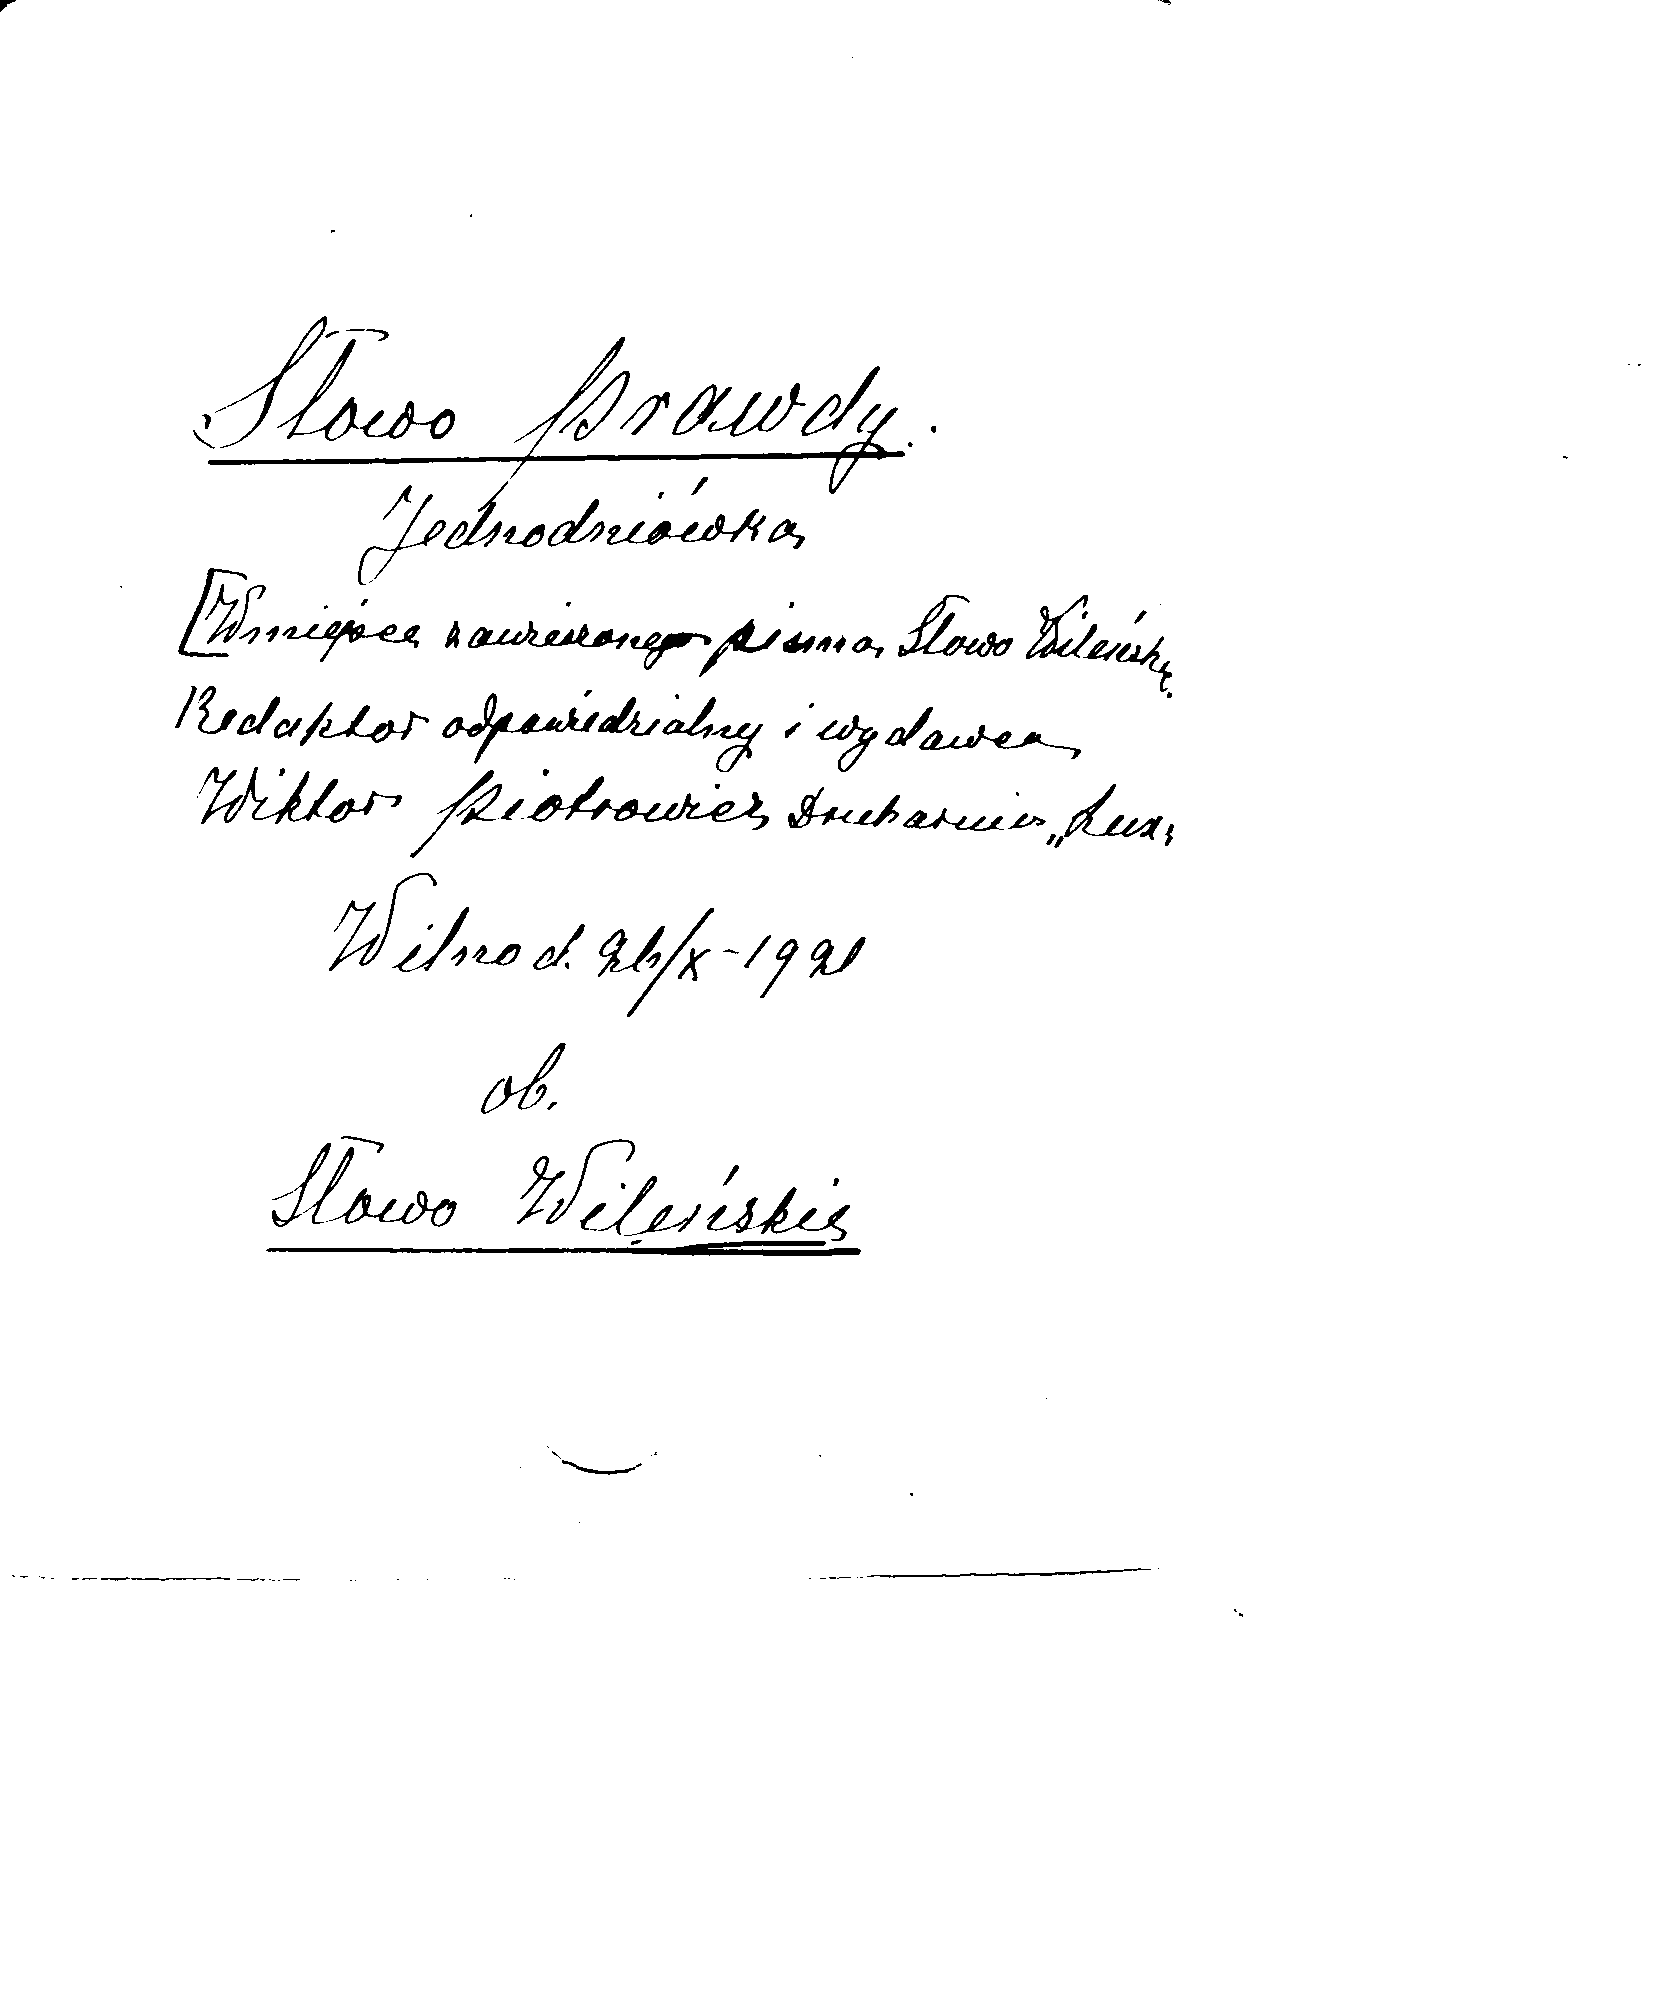 Słowo Prawdy.
Jednodniówka
[W miejsce zawieszonego pisma Słowo Wileńskie
Redaktor odpowiedzialny i wydawca
Wiktor Piotrowicz Drukarnia „Lux"
Wilno d. 26/X-1921
ob.
Słowo Wileńskie